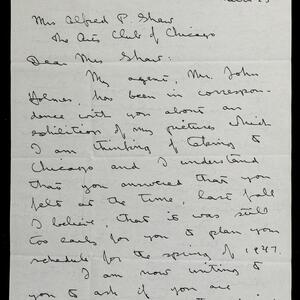 Mrs Alfred P. Shaw
The Arts Club of Chicago
Dear Mrs Shaw:
My agent, Mr. John
Holmes, has been in correspon-
dence with you about an
exhibition of my pictures which
I am thinking of taking to
Chicago and I understand
that you answered that you
felt at the time, last fall
I believe, that it was still
too early for you to plan your
schedule for the spring of 1947.
I am now writing to
you to ask if you are